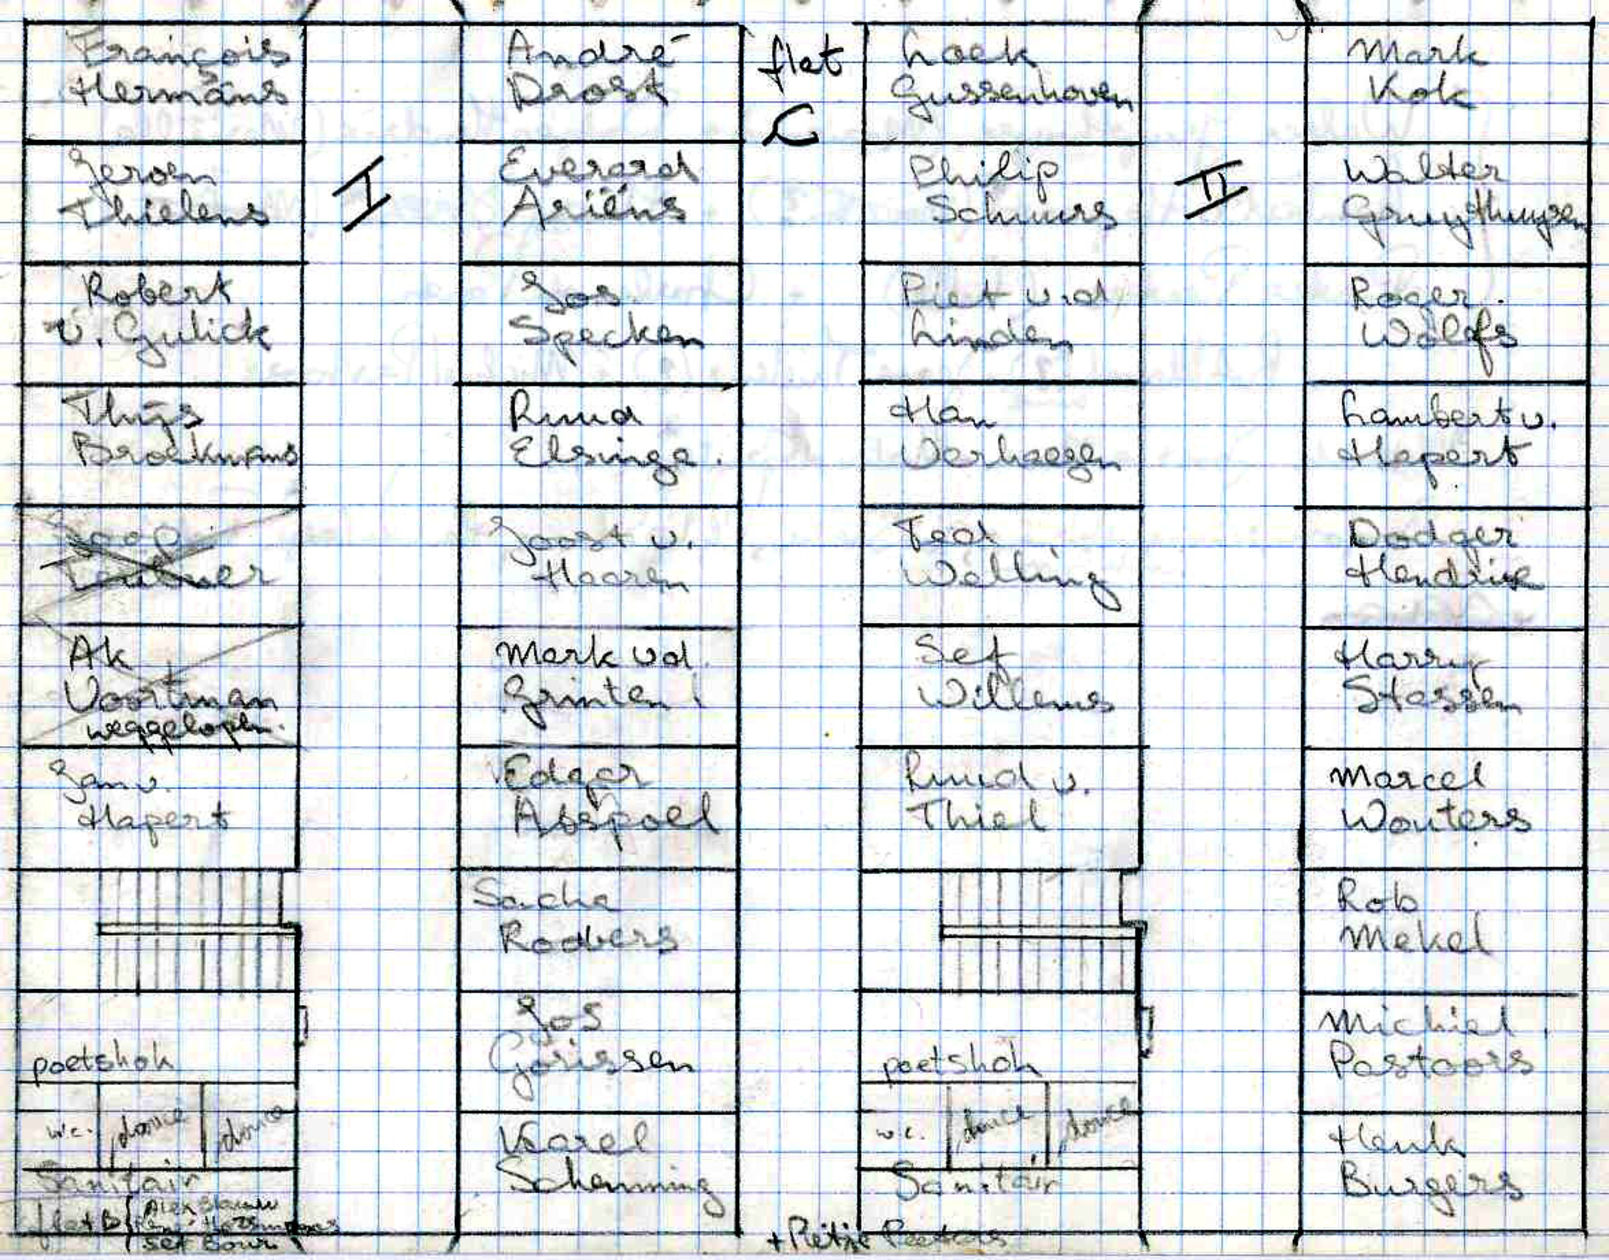 François
Hermans
Jeroen
Thielens
Robert
v. Gulick
Thijs
Broekmans
Joop
Ak
Voortman
weggelopen.
Jan v.
Hapert
poetshok
w.c. douce douce
Sanitair
flat B
Sef Bour
I
André
Drost
Everard
Ariëns
Jos
Specken
Ruud
Elsinga.
Joost v.
Haaren
Mark vd
Grinten
Edgar
Abspoel
Sacha
Rodbers
Jos
Gorissen
Karel
Schemming
flat
C
Loek
Gussenhoven
Philip
Schuurs
Piet v.d
Linden
Han
Verhaegen
Ted
Walling
Sef
Willems
Ruud v.
Thiel
poetshok
w.c. douce douce
Sanitair
+ Pietje Peeters
II
Mark
Kok
Walter
Gruythuysen
Roger
Wolfs
Lambert v.
Hapert
Dodger
Hendrix
Harry
Stassen
Marcel
Wouters
Rob
Mekel
Michiel
Pastoors
Henk
Burgers